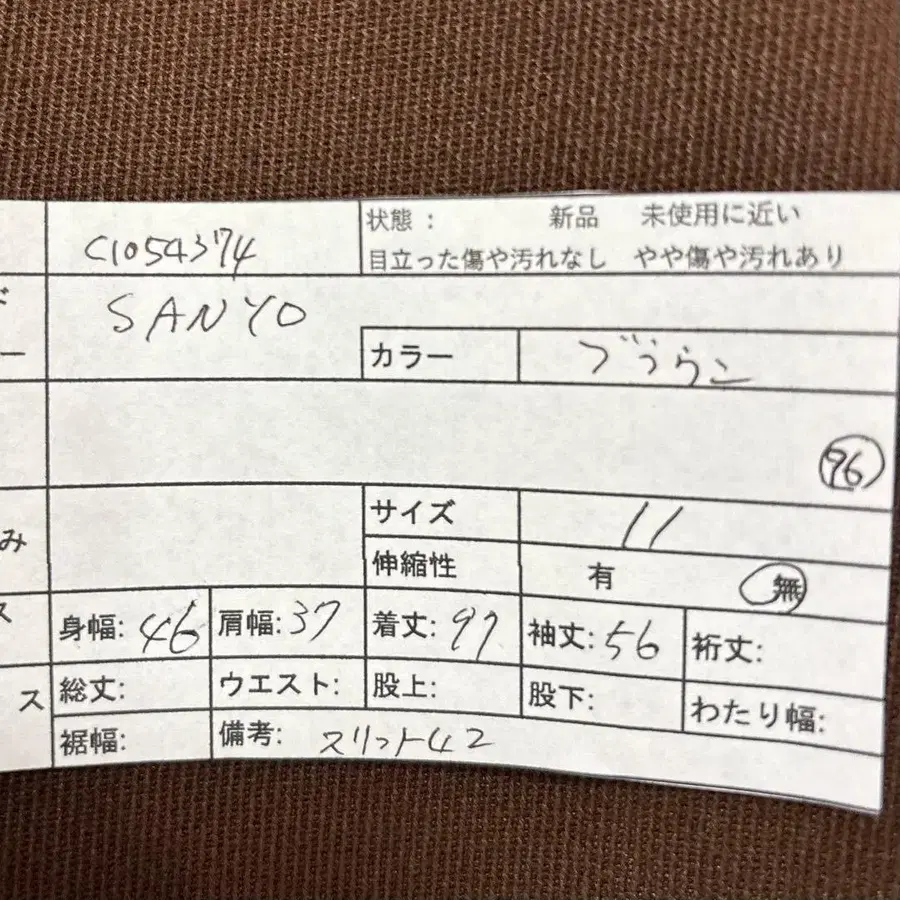 C1054374
状態： 新品 未使用に近い
目立った傷や汚れなし やや傷や汚れあり
ド
SANYO
ー
カラー ブラウン
96
み
サイズ 11
伸縮性 有 無
ス
身幅: 46 肩幅: 37 着丈: 97 袖丈: 56 裄丈:
ス
総丈: ウエスト: 股上: 股下: わたり幅:
裾幅: 備考: スリット42